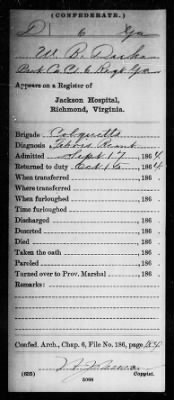 (CONFEDERATE.)
D 6 Ga
W. B.
Co. D. 6 Regt Ga
Appears on a Register of
Jackson Hospital,
Richmond, Virginia.
Brigade Colquitts
Diagnosis Febris Remit
Admitted Sept 17, 1864.
Returned to duty Oct 16, 1864.
When transferred , 186 .
Where transferred
When furloughed , 186 .
Time furloughed
Discharged , 186 .
Deserted , 186 .
Died , 186 .
Taken the oath , 186 .
Paroled , 186 .
Turned over to Prov. Marshal , 186 .
Remarks:
Confed. Arch., Chap. 6, File No. 186, page
(635) 3068 Copyist.